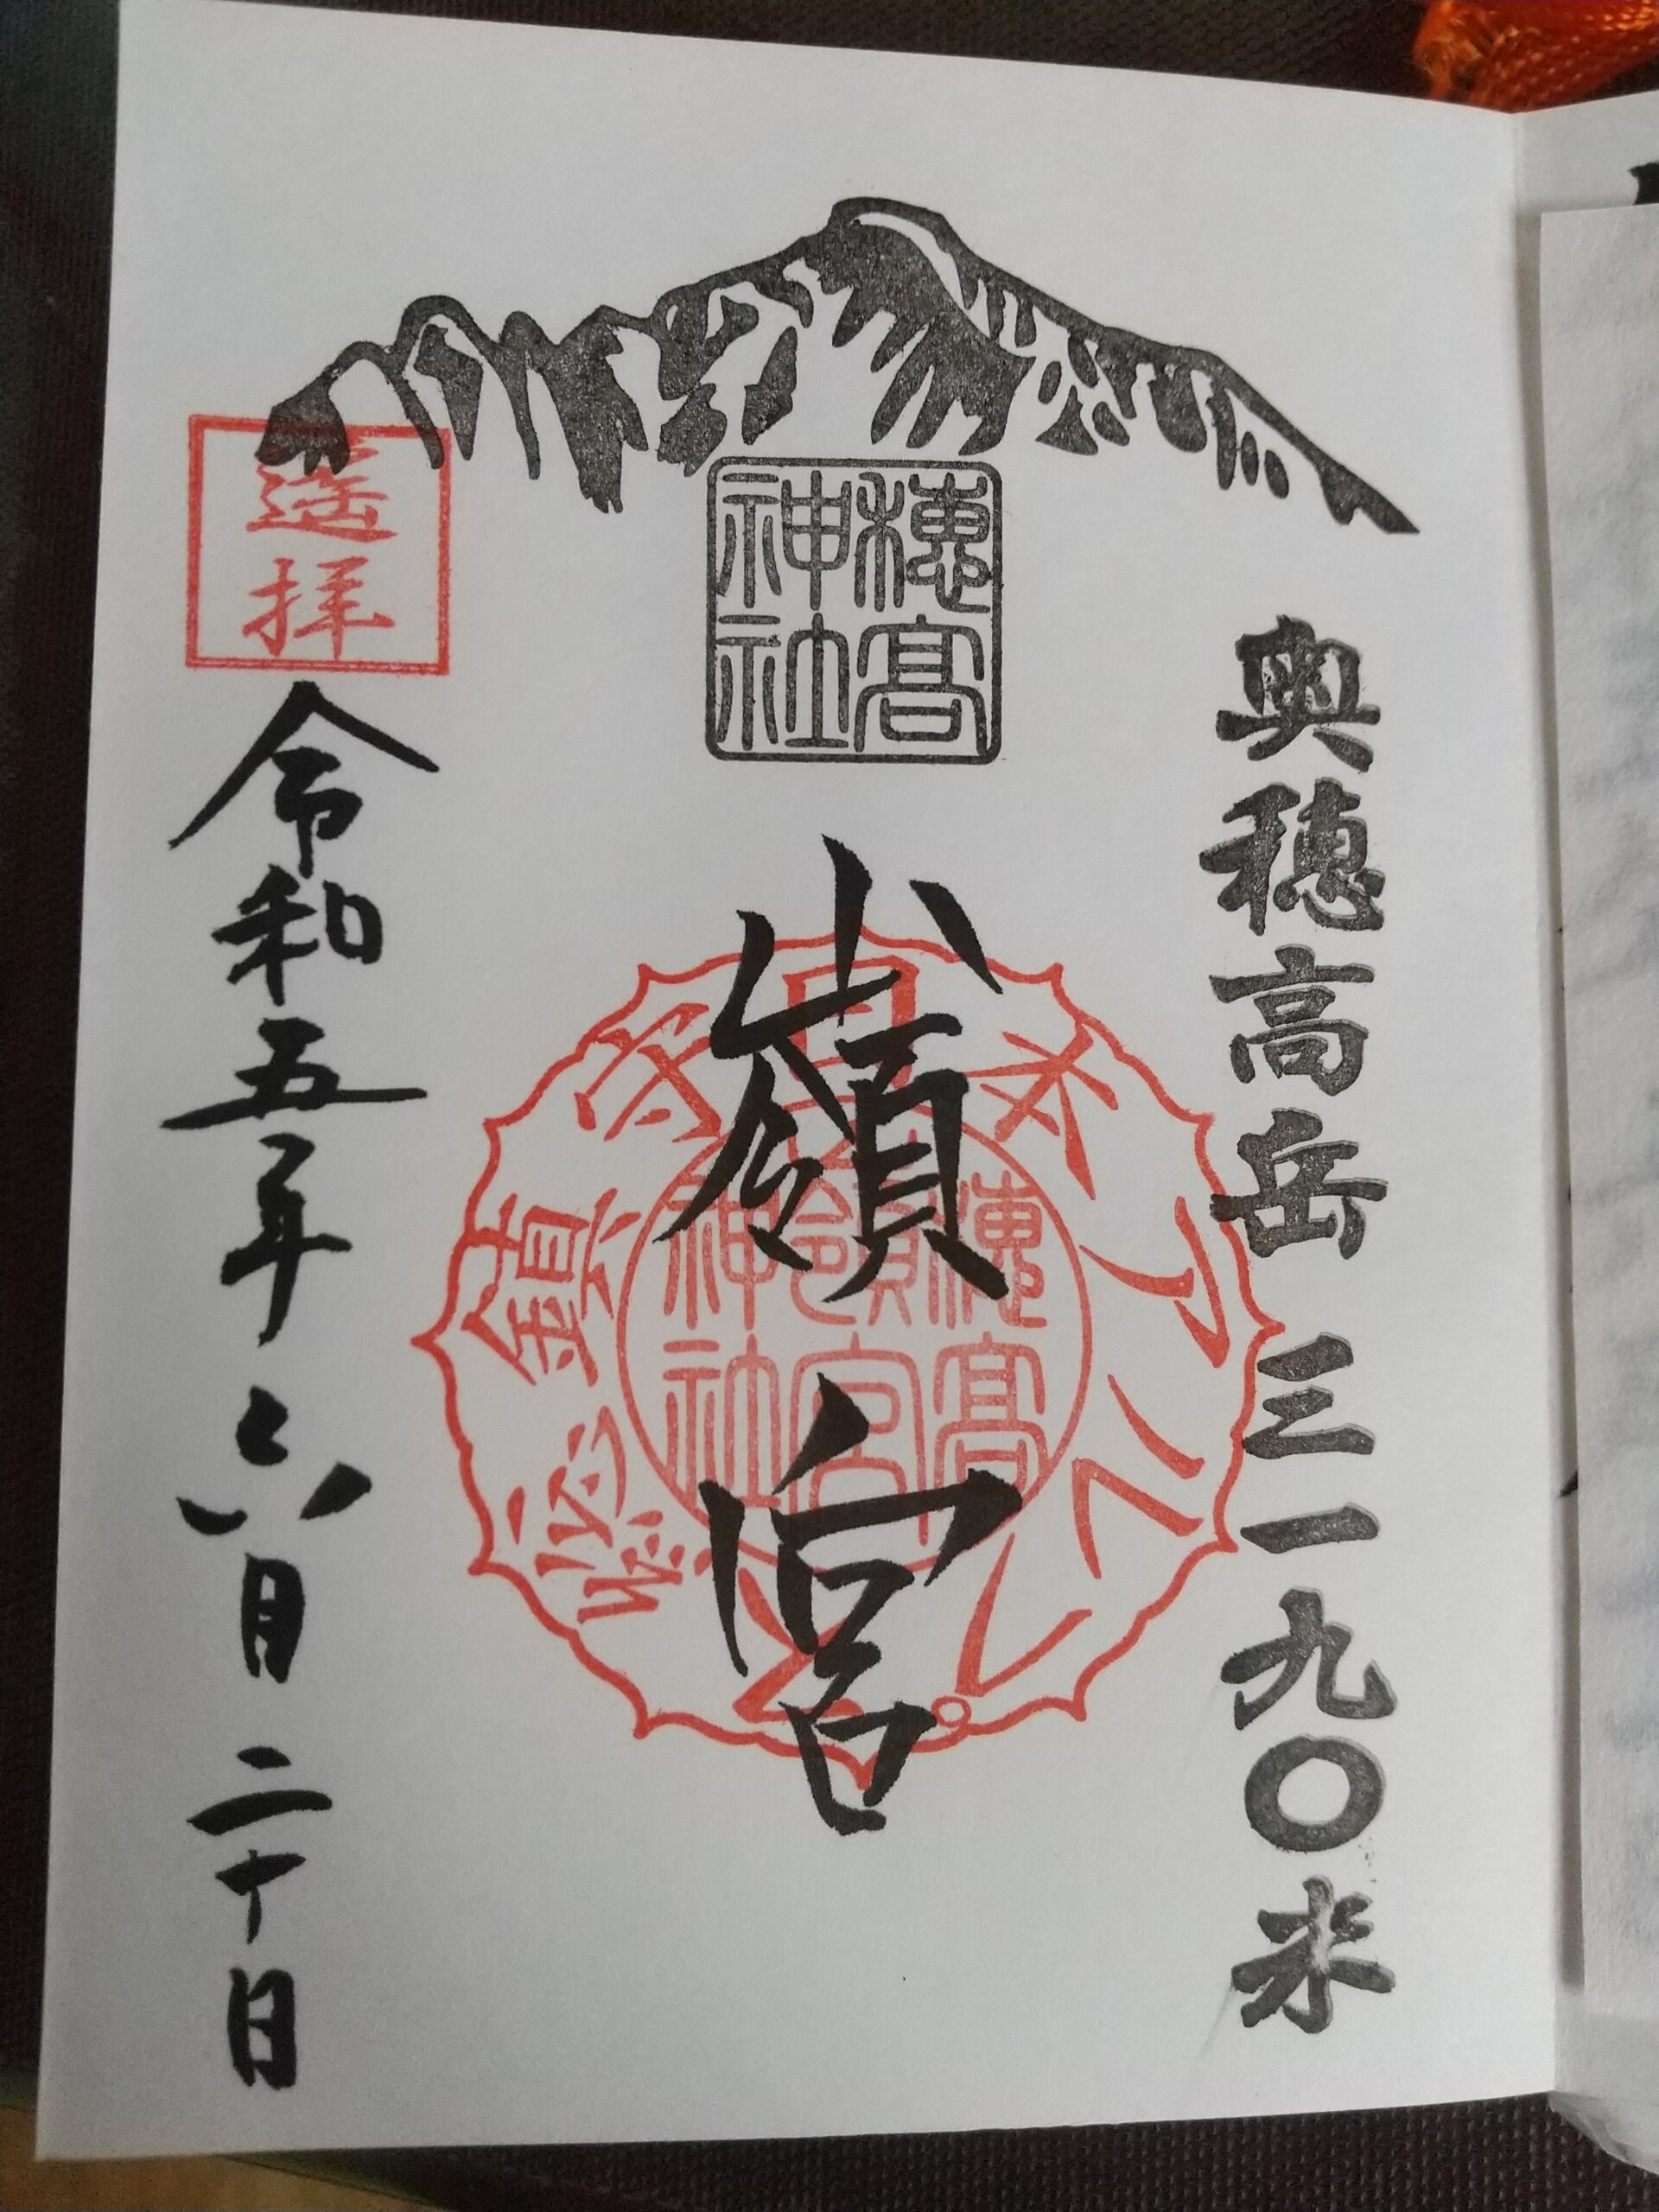 奥穂高岳 三一九〇米
穂高
神社
嶺宮
日本アルプス総鎮守
穂高
嶺宮
神社
遥拝
令和五年六月二十日